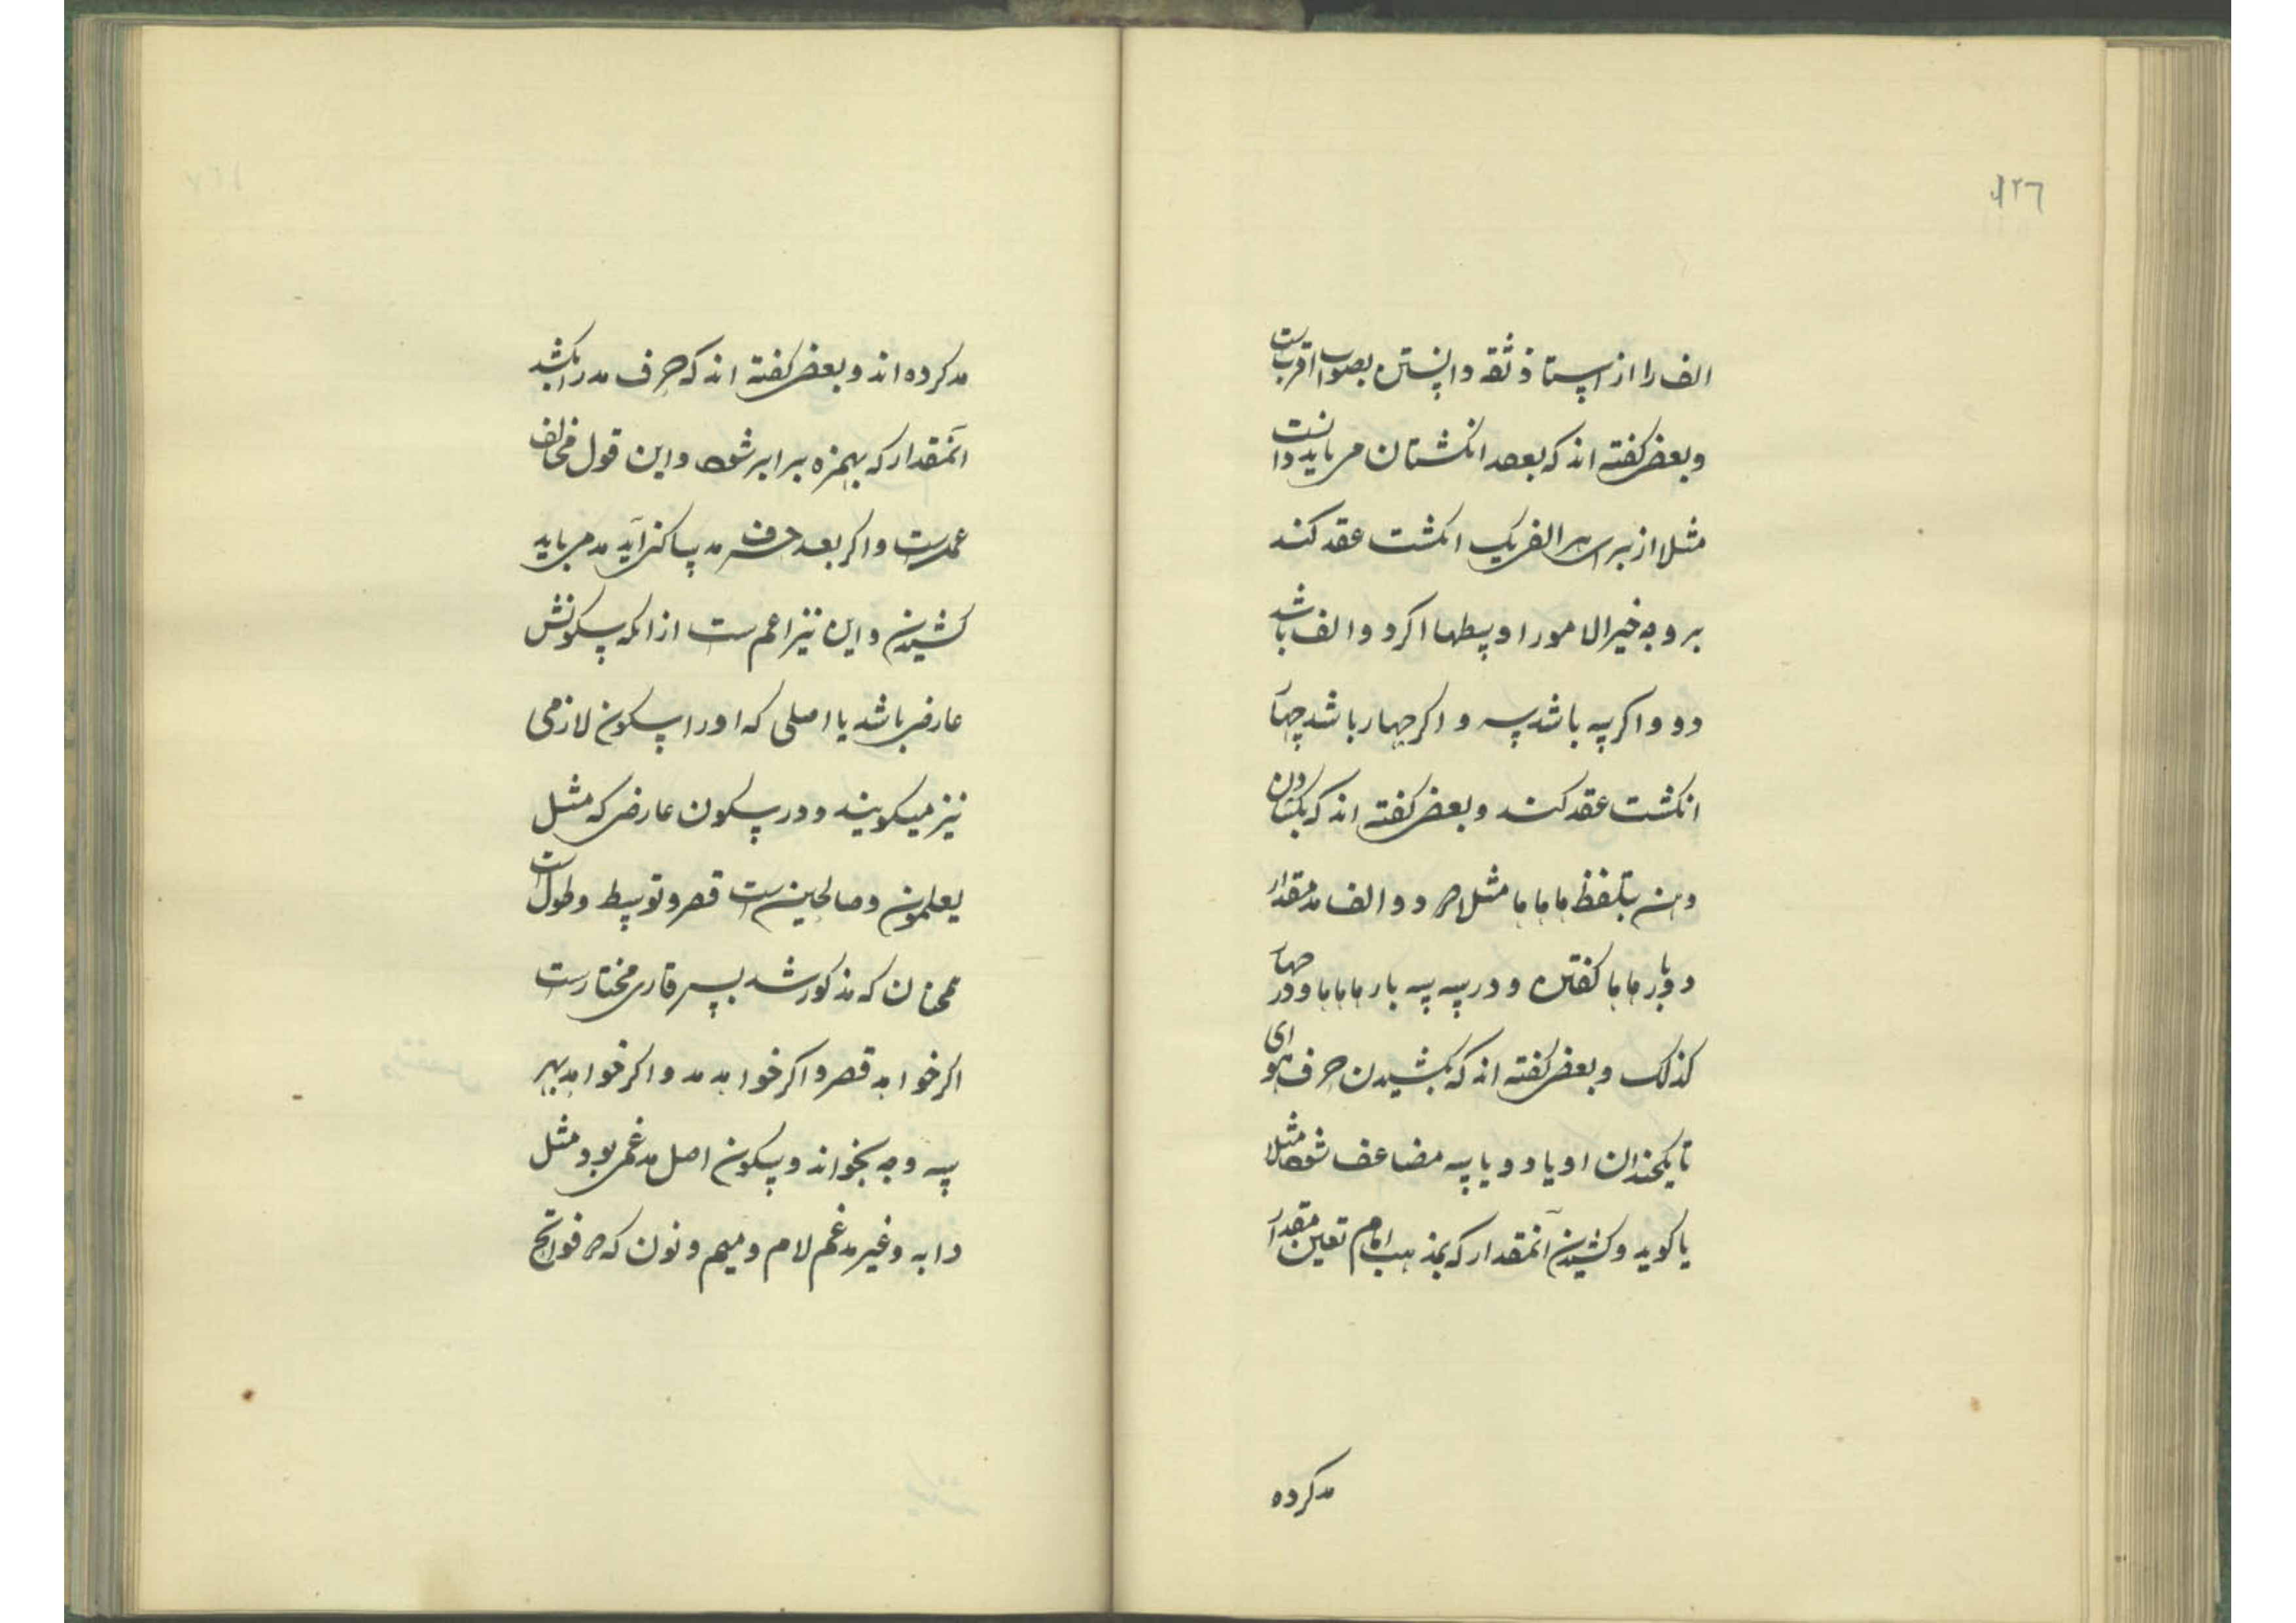 ۱۲٦
الف را از استاذ ثقه دانستن بصواب اقرب ست
و بعضی کفته اند که بعد انکشتان می باید دانست
مثلا از برای هر الفی یک انکشت عقد کند
بر وجه خیر الامور اوسطها اکر دو الف باشد
دو و اکر سه باشد سه و اکر چهار باشد چهار
انکشت عقد کند و بعضی کفته اند که بکشادن
دهن بتلفظ ماماما مثلا در دو الف مد مقدار
دو بار ماما کفتن و در سه سه بار ماماما و در چهار
کذلک و بعضی کفته اند که بکشیدن حرف هوای
تا یکچندان او یا دو یا سه مضاعف شود مثلا
یا کوید و کشیدن آنمقدار که بمذهب امام تعین مقدار
مد کرده
مد کرده اند و بعضی کفته اند که حرف مد را بکشد
آنمقدار که بهمزه برابر شود و این قول مخالف
عمدست و اکر بعد حرف مد ساکنی آید مد می باید
کشیدن و این نیز اعم ست از انکه سکونش
عارضی باشد یا اصلی که او را سکون لازمی
نیز میکویند و در سکون عارضی که مثل
یعلمون و صالحین ست قصر و توسط و طول ست
همچنان که مذکور شد پس قاری مختارست
اکر خواهد قصر و اکر خواهد مد و اکر خواهد بهر
سه وجه بخواند و سکون اصلی مدغمی بود مثل
دابه و غیر مدغم لام و میم و نون که در فواتح